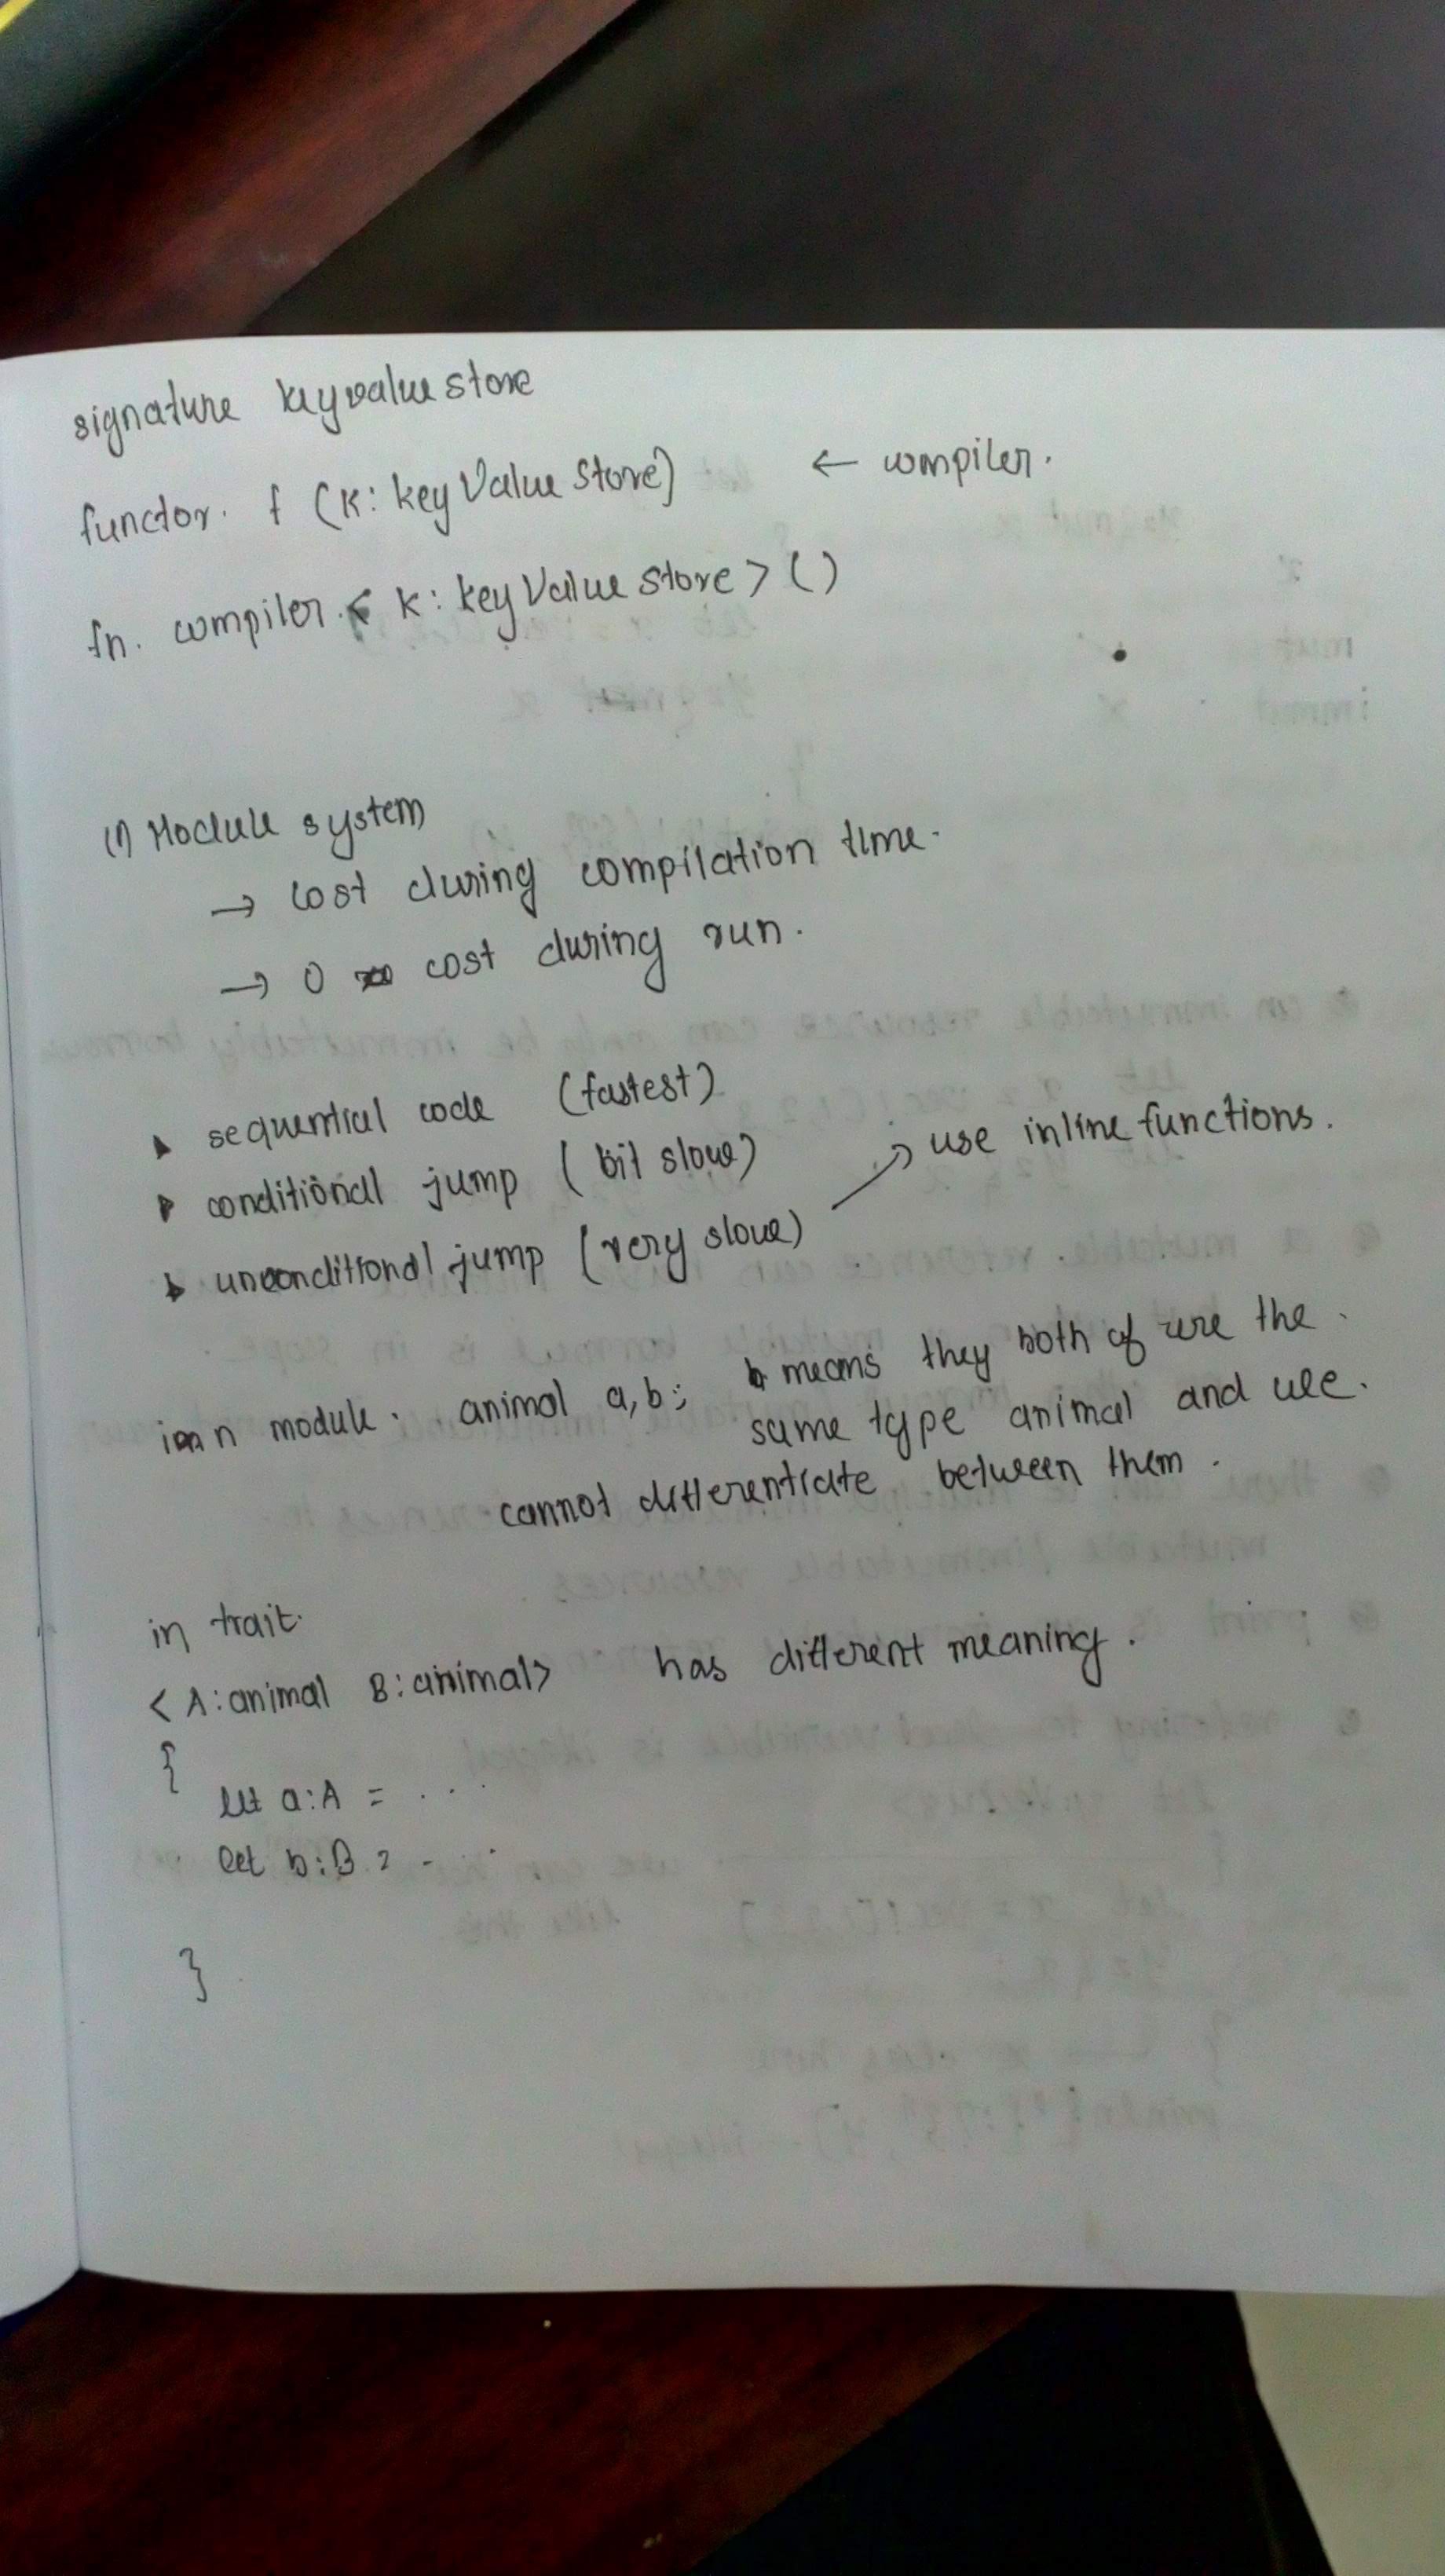 signature keyvaluestore
functor. f (K: key Value Store) ← compiler.
fn. compiler < K: key Value Store > ()
(1) Module system
→ cost during compilation time.
→ 0 cost during run.
sequential code (fastest)
conditional jump (bit slow) use inline functions.
unconditional jump (very slow)
in module. animal a, b; means they both of are the
same type animal and we
cannot differentiate between them.
in trait.
< A: animal B: animal> has different meaning.
{
let a: A = . . .
let b: B = . . .
}